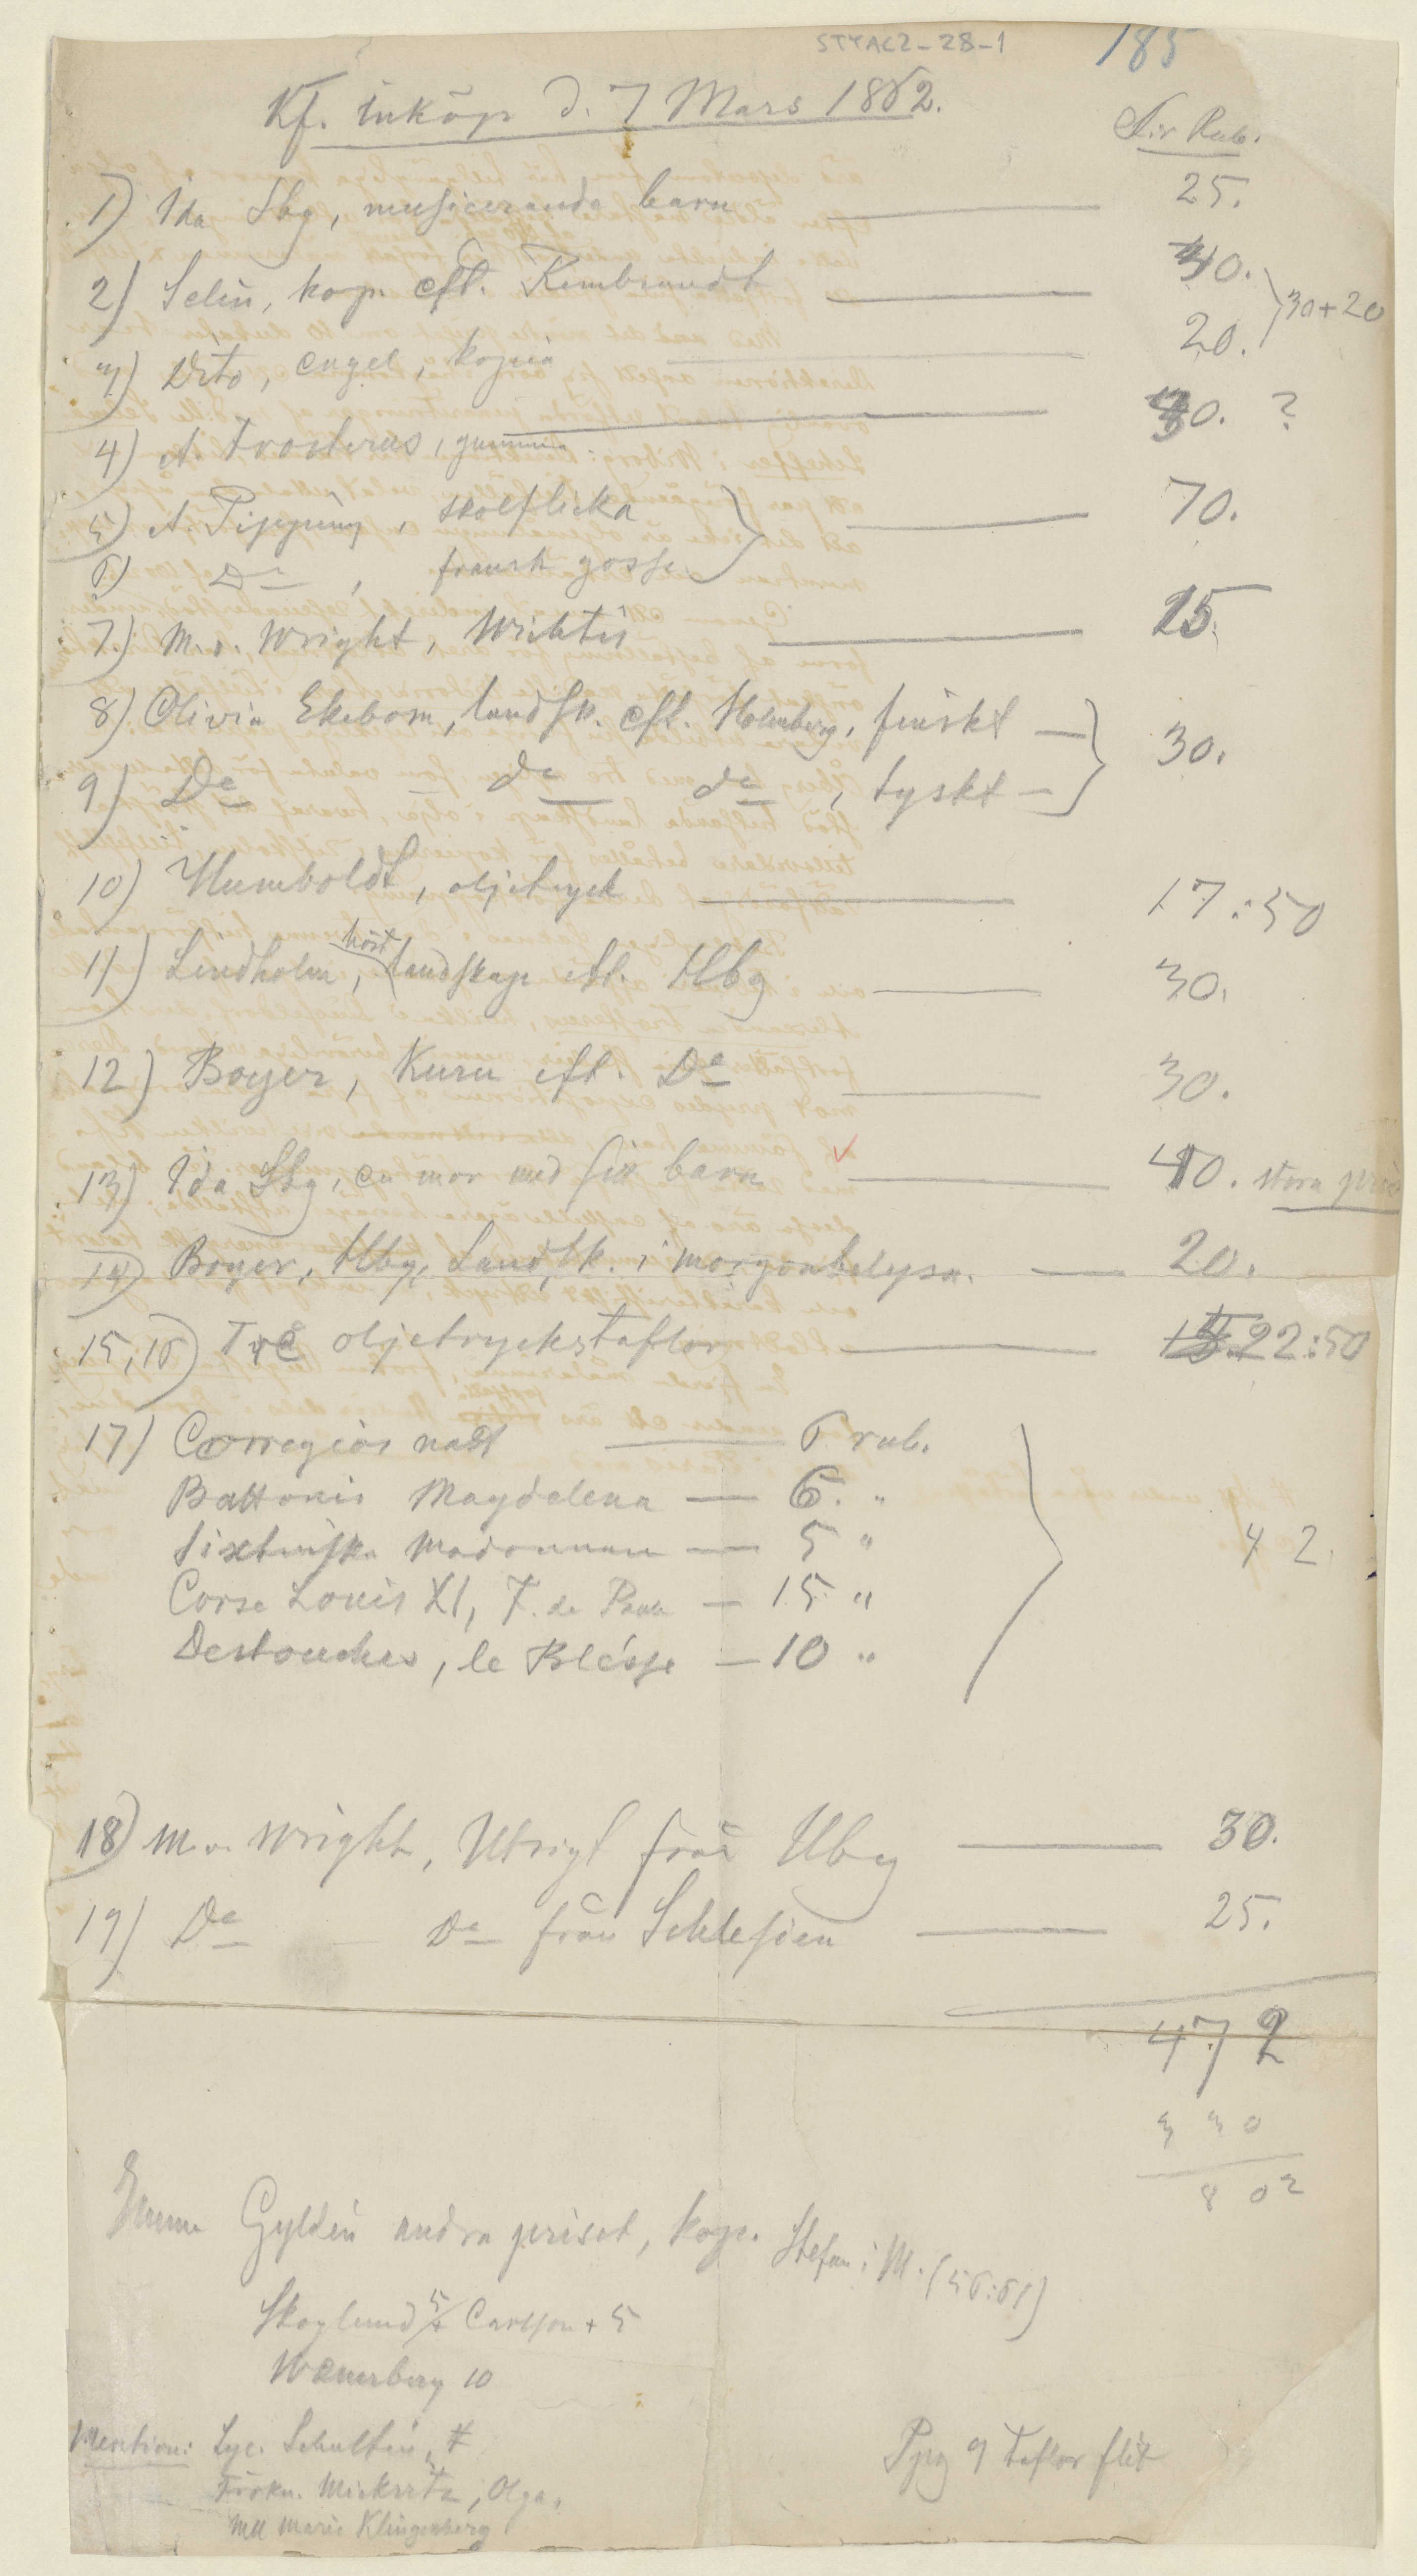 STYAC2-28-1
185
Kf. inköp d. 7 Mars 1862.
Sir Rub.
1) Ida Sbg, musicerande barn — 25.
2) Selin, kop. eft. Rembrandt — 40. } 30+20
3) Dito, engel, kopia — 20.
4) A. Frosterus, gumma — 30. ?
5) A. Pipping, skolflicka } — 70.
6) Do, fransk gosse
7) M. v. Wright, Wichtis — 15.
8) Olivia Ekebom, landsk. eft. Holmberg, finskt — } 30.
9) De de de, tyskt —
10) Humboldt, oljetryck — 17:50
11) Lindholm, höst landskap eft. Hbg — 30.
12) Boyer, Kuru eft. De — 30.
13) Ida Sbg, en mor med sitt barn — 40. stora pris
14) Boyer, Hbg, Landsk. i morgonbelysn. — 20.
15, 16) Två oljetryckstaflor — 22:50
17) Corregios natt — 6 rub.
Battonis Magdalena — 6. "
Sixtinska Madonnan — 5 "
42.
Corse Louis XI, F. de Paule — 15 "
Destouches, le Blésse — 10 "
18) M. v. Wright, Utsigt från Hbg — 30.
19) De De från Schlesien — 25.
472
330
802
Emma Gyldén andra priset, kop. Stefan i M. (56:61)
Skoglund 5 Carlson + 5
Wænerberg 10
Mention: Lyc. Schultén, #
Frökn. Mickwitz, Olga,
Mll Marie Klingenberg
Ppg 9 Taflor flit